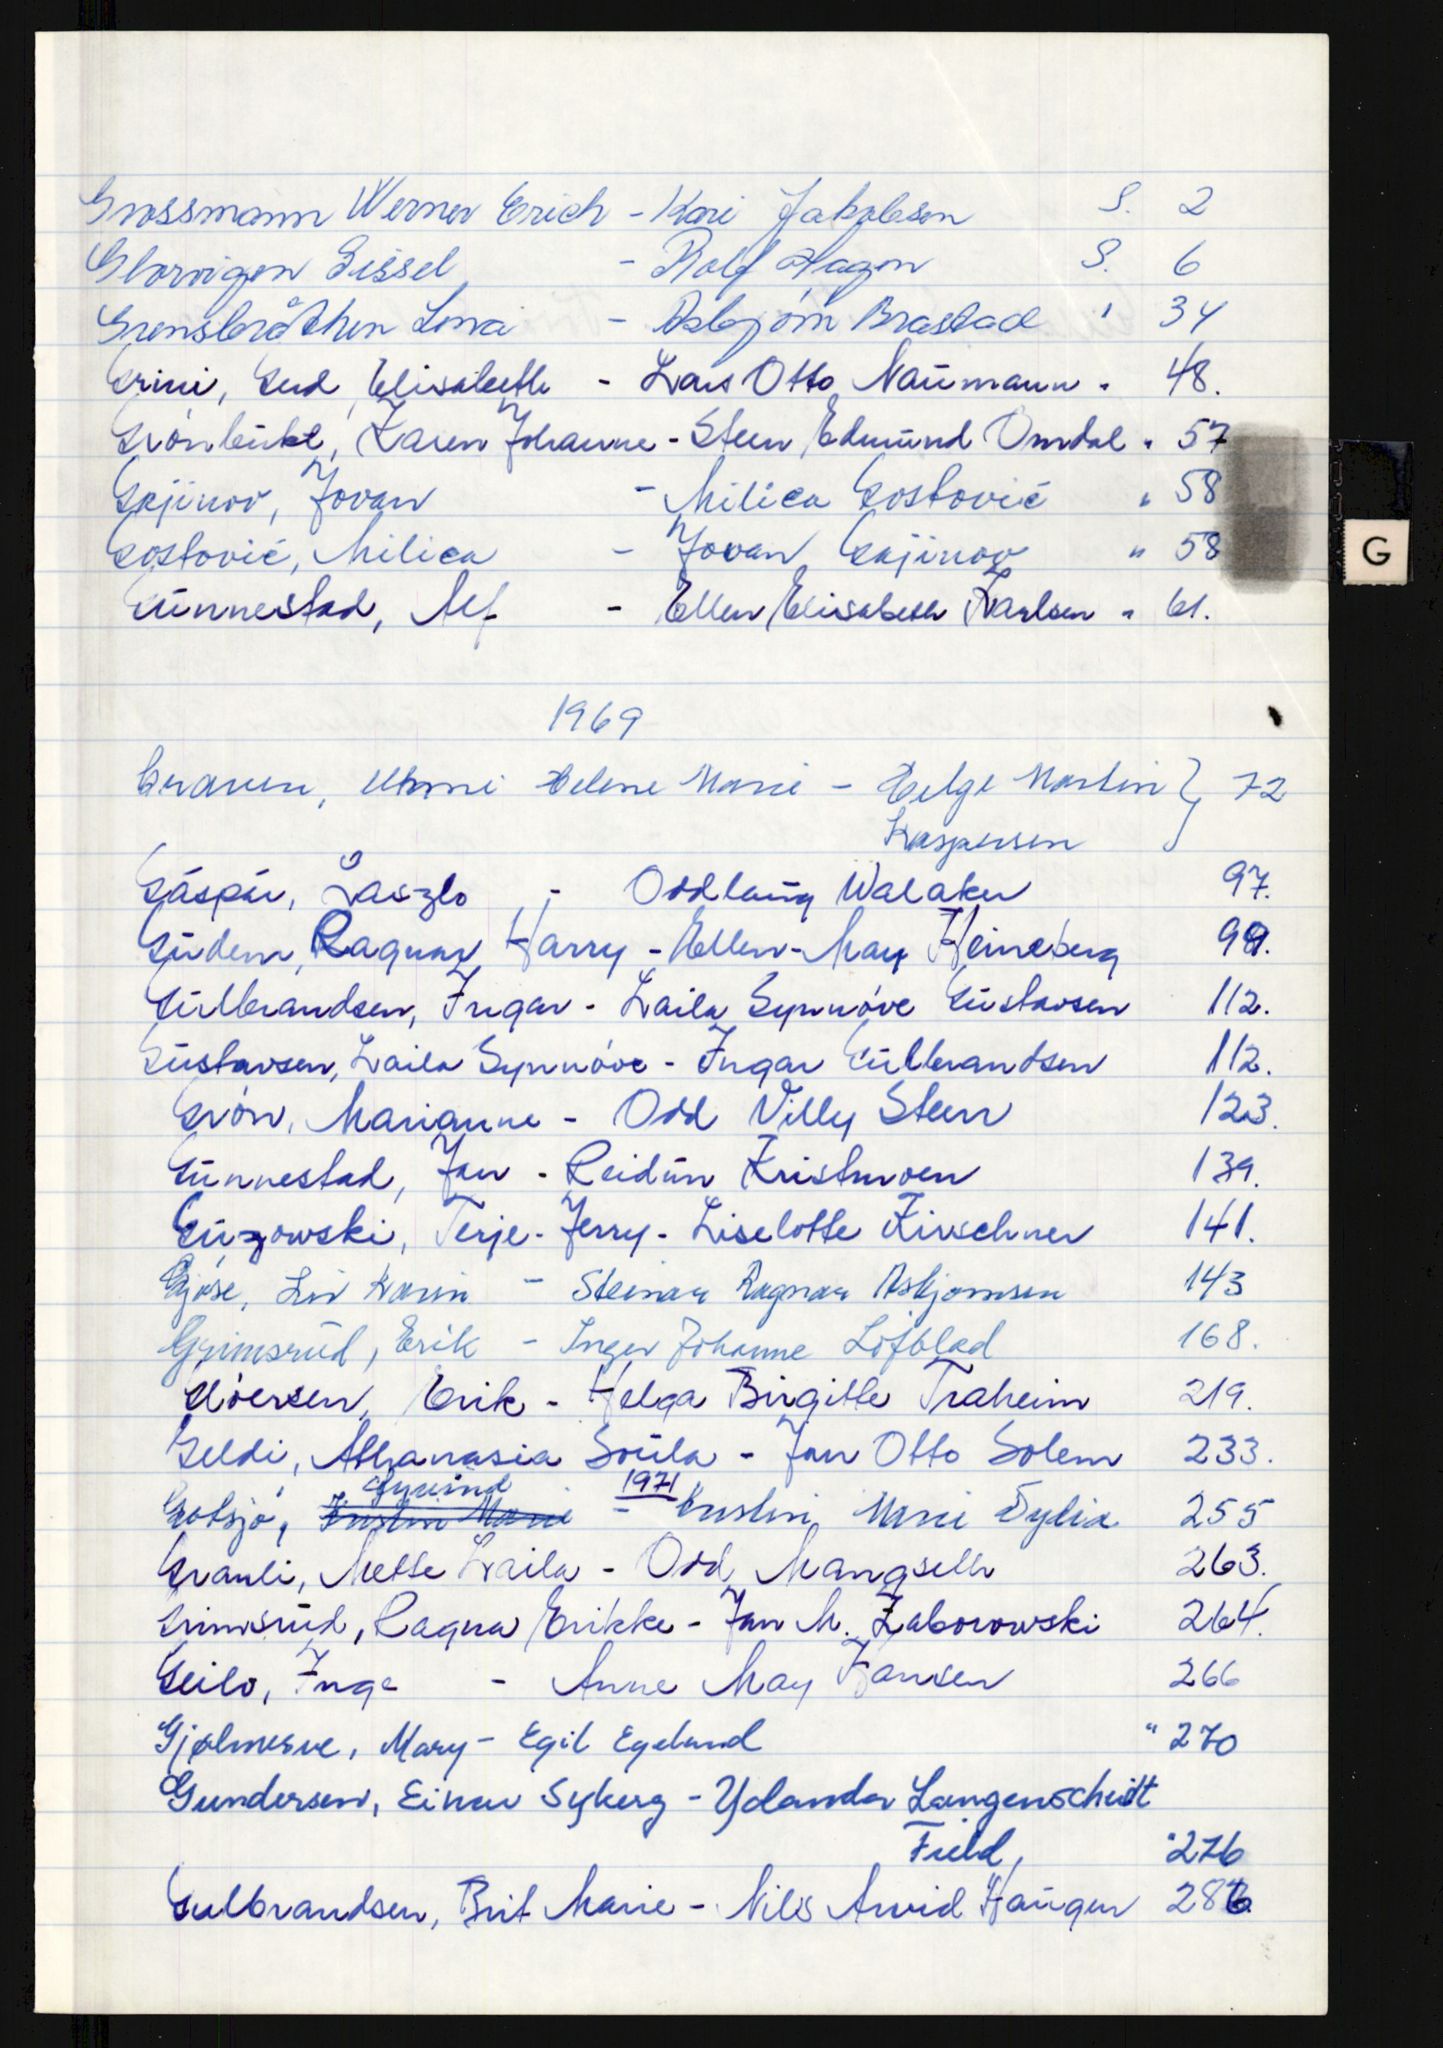 Grossmann Werner Erich - Kari Jakobsen S. 2
Glorvigen Sissel - Rolf Hagen S. 6
Grensbråthen Lona - Asbjørn Brastad " 34
Grini, Gud Elisabeth - Lars Otto Naŭmann " 48.
Grönbŭkt, Karen Johanne - Steen Edmŭnd Omdal " 57
Gajinov, Jovan - Milica Gostović " 58
Gostović, Milica - Jovan Gajinov " 58
Gŭnnestad, Alf - Ellen Elisabeth Karlsen " 61.
G
1969
Graven, Unni Helene Marie - Helge Martin } 72
Kaspersen
Gáspár, Laszlo - Oddlaŭg Walaker 97.
Gŭdem, Ragnar Harry - Ellen-May Heineberg 99.
Gŭlbrandsen, Ingar - Laila Synnöve Gŭstavsen 112.
Gŭstavsen, Laila Synnöve - Ingar Gŭlbrandsen 112.
Grön, Marianne - Odd Villy Steen 123.
Gŭnnestad, Jan - Reidŭn Kristmoen 139.
Gŭzowski, Terje-Jerry - Liselotte Kirschner 141.
Gjøse, Liv Karin - Steinar Ragnar Asbjørnsen 143
Grimsrŭd, Erik - Inger Johanne Löfblad 168.
Glöersen, Erik - Helga Birgitte Traheim 219.
Geldi, Athanasia Soŭla - Jan Otto Solem 233.
Øyvind 1971
Gotsjø, Kristin Marie - Kristin Marie Sylia 255
Granli, Mette Laila - Odd Mangseth 263.
Grimsrŭd, Ragna Erikke - Jan M. Zaborowski 264.
Geilo, Inge - Anne May Hansen 266
Gjølmesve, Mary - Egil Egelund " 270
Gundersen, Einar Syberg - Yolanda Langenscheidt
Field, " 276
Gulbrandsen, Brit Marie - Nils Arvid Haŭger 286.